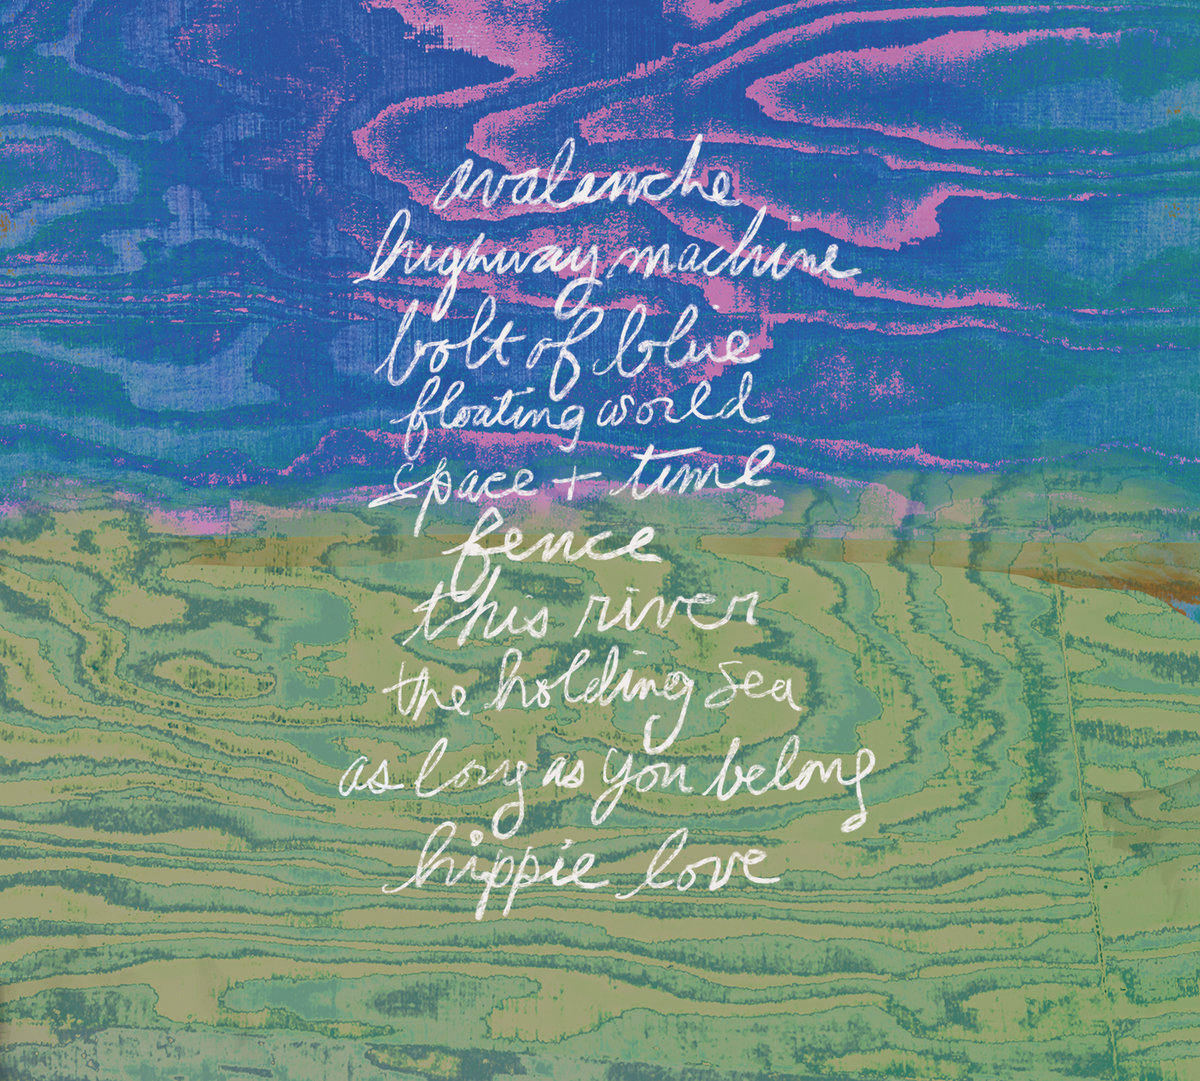 avalanche
highway machine
bolt of blue
floating world
space + time
fence
this river
the holding sea
as long as you belong
hippie love